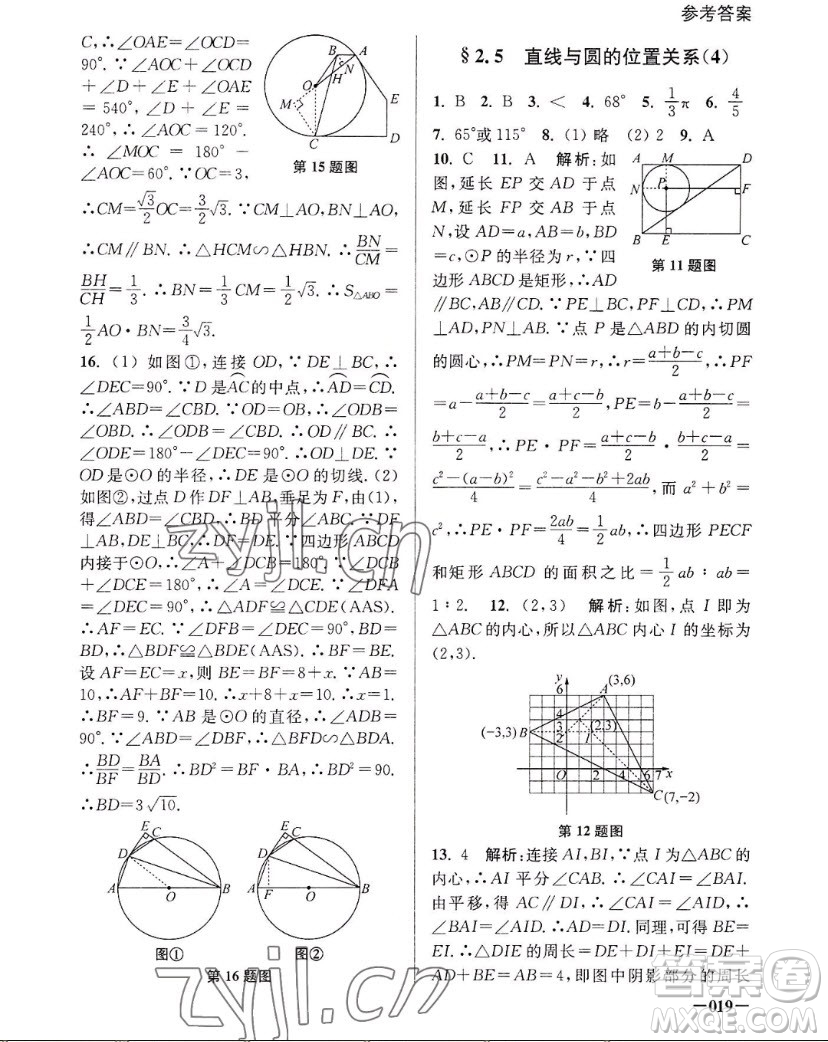 参考答案
C,∴∠OAE=∠OCD=
90°.∵∠AOC+∠OCD
+∠D+∠E+∠OAE
=540°,∠D+∠E=
240°,∴∠AOC=120°.
∴∠MOC=180°-
∠AOC=60°.∵OC=3,
B A N H O M C D E
第15题图
∴CM=√3/2 OC=3/2√3.∵CM⊥AO,BN⊥AO,
∴CM∥BN.∴△HCM∽△HBN.∴BN/CM=
BH/CH=1/3.∴BN=1/3 CM=1/2√3.∴S△ABO=
1/2 AO·BN=3/4√3.
16.(1)如图①,连接OD,∵DE⊥BC,∴
∠DEC=90°.∵D是AC的中点,∴AD=CD.
∴∠ABD=∠CBD.∵OD=OB,∴∠ODB=
∠OBD.∴∠ODB=∠CBD.∴OD∥BC.∴
∠ODE=180°-∠DEC=180°-90°=90°.∵
OD是⊙O的半径,∴DE是⊙O的切线.(2)
如图②,过点D作DF⊥AB,垂足为F,由(1),
得∠ABD=∠CBD.∴BD平分∠ABC.∵DF
⊥AB,DE⊥BC,∴DF=DE.∵四边形ABCD
内接于⊙O,∴∠A+∠DCB=180°.∵∠DCB+
∠DCE=180°,∴∠A=∠DCE.∵∠DFA
=∠DEC=90°,∴△ADF≌△CDE(AAS).
∴AF=EC.∵∠DFB=∠DEC=90°,BD=
BD,∴△BDF≌△BDE(AAS).∴BF=BE.
设AF=EC=x,则BE=BF=8+x.∵AB=
10,∴AF+BF=10.∴x+8+x=10.∴x=1.
∴BF=9.∵AB是⊙O的直径,∴∠ADB=
90°.∵∠ABD=∠DBF,∴△BFD∽△BDA.
∴BD/BF=BA/BD.∴BD²=BF·BA,∴BD²=90.
∴BD=3√10.
E C D A O B
图①
E C D A F O B
图②
第16题图
§2.5 直线与圆的位置关系(4)
1. B 2. B 3. < 4. 68° 5. 1/3π 6. 4/5
7. 65°或115° 8. (1)略 (2)2 9. A
10. C 11. A 解析:如
图,延长EP交AD于点
M,延长FP交AB于点
N,设AD=a,AB=b,BD
=c,⊙P的半径为r,∵四
边形ABCD是矩形,∴AD
A M D N P F B E C
第11题图
∥BC,AB∥CD.∵PE⊥BC,PF⊥CD,∴PM
⊥AD,PN⊥AB.∵点P是△ABD的内切圆
的圆心,∴PM=PN=r,∴r=(a+b-c)/2,∴PF
=a-(a+b-c)/2=(a+c-b)/2,PE=b-(a+b-c)/2=
(b+c-a)/2,∴PE·PF=(a+c-b)/2·(b+c-a)/2=
(c²-(a-b)²)/4=(c²-a²-b²+2ab)/4,而a²+b²=
c²,∴PE·PF=2ab/4=1/2 ab,∴四边形PECF
和矩形ABCD的面积之比=1/2 ab:ab=
1:2. 12. (2,3) 解析:如图,点I即为
△ABC的内心,所以△ABC内心I的坐标为
(2,3).
y 6 A(3,6)
(-3,3)B 4 3 2 (2,3) I
O 2 4 6 7 x
C(7,-2)
第12题图
13. 4 解析:连接AI,BI,∵点I为△ABC的
内心,∴AI平分∠CAB.∴∠CAI=∠BAI.
由平移,得AC∥DI,∴∠CAI=∠AID.∴
∠BAI=∠AID.∴AD=DI.同理,可得BE=
EI.∴△DIE的周长=DE+DI+EI=DE+
AD+BE=AB=4,即图中阴影部分的周长
019
zyjl.cn
zyjl.cn
答案圈
MXQE.COM